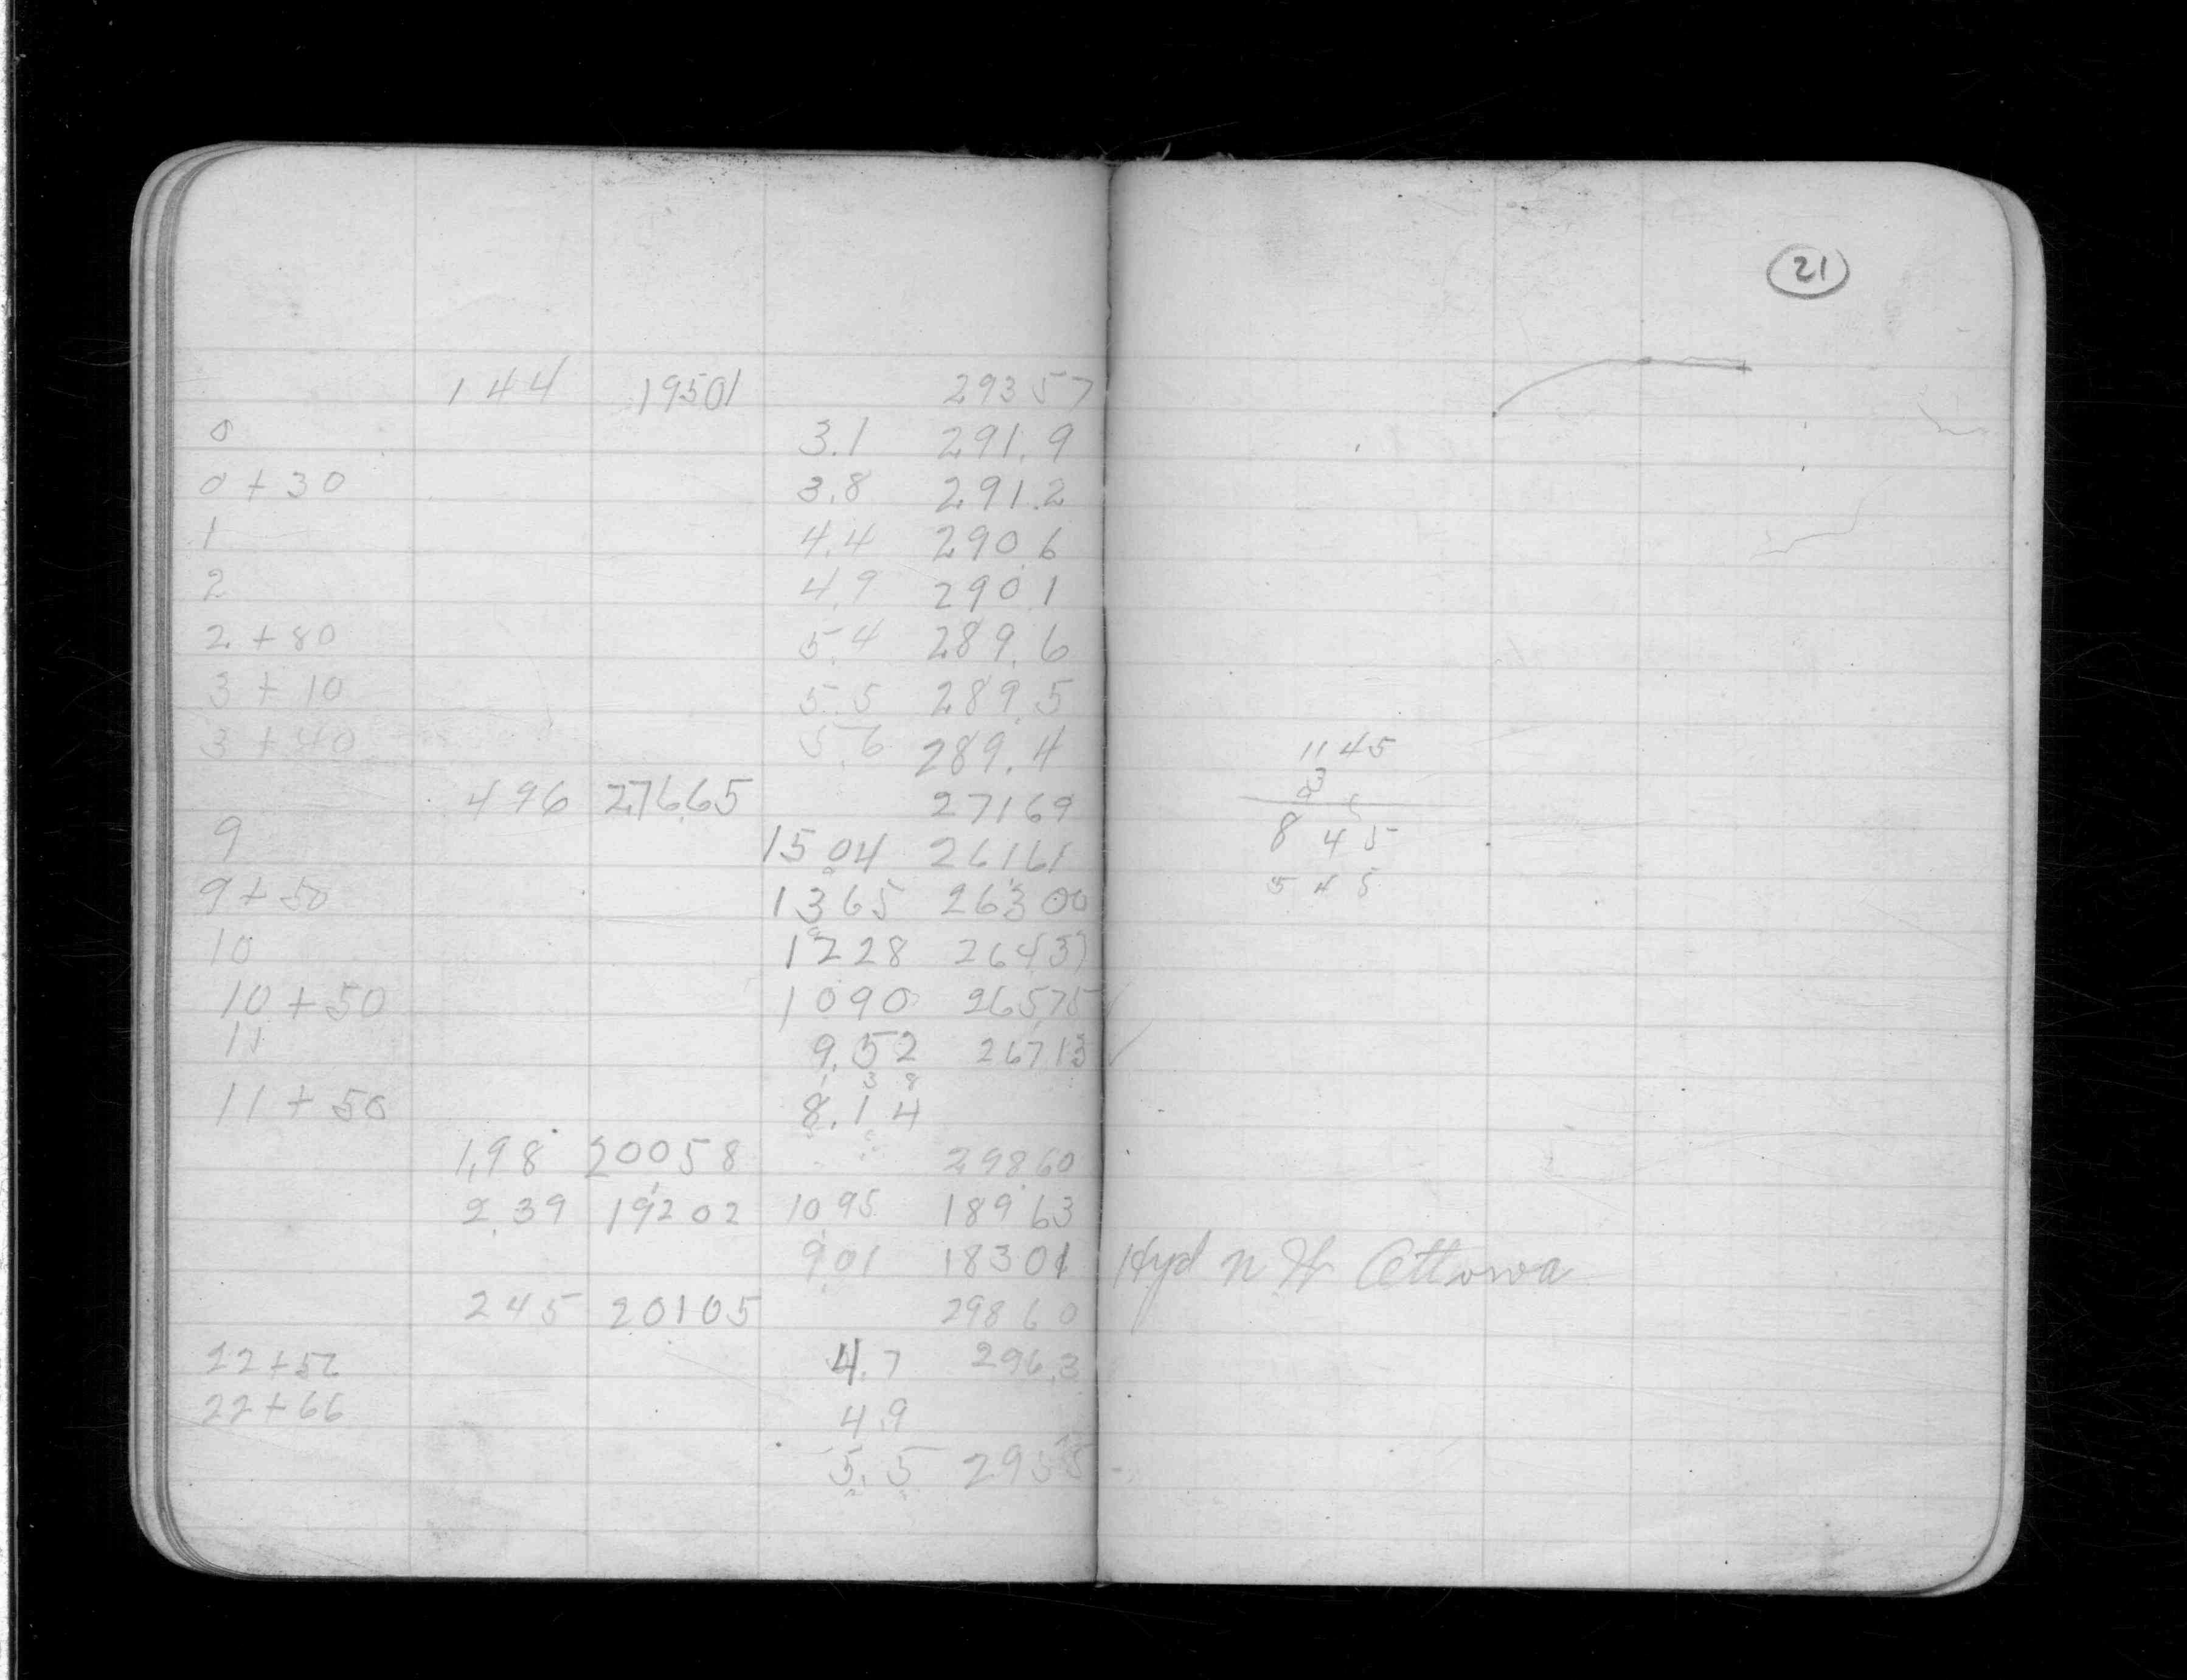 21
144 19501 29357
0 3.1 291.9
0+30 3.8 291.2
1 4.4 290.6
2 4.9 290.1
2+80 5.4 289.6
3+10 5.5 289.5
3+40 5.6 289.4
496 276.65 27169
9 1504 26161
9+50 1365 26300
10 1228 26437
10+50 1090 26575
11 9.52 26713
1 3 8
11+50 8.14
1.98 20058 29860
2.39 19202 10.95 18963
901 18301
245 20105 29860
22+52 4.7 296.3
22+66 4.9
5.5 2958
1145
3
8 45
5 45
Hyd n W Ottawa